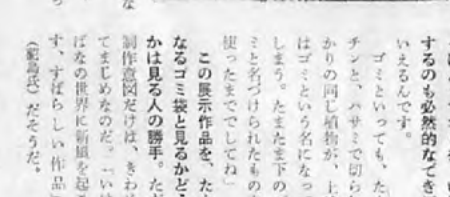 するのも必然的なでき
いえるんです。
ゴミといっても、た
チンと、ハサミで切ら
かりの同じ植物が、上
はゴミという名になっ
しまう。たまたま下の
ミと名づけられたもの
使ったまででしてね」
この展示作品を、た
なるゴミ袋と見るかど
かは見る人の勝手。ただ
制作意図だけは、きわ
てまじめなのだ。「い
ばなの世界に新風を起
す、すばらしい作品
だそうだ。